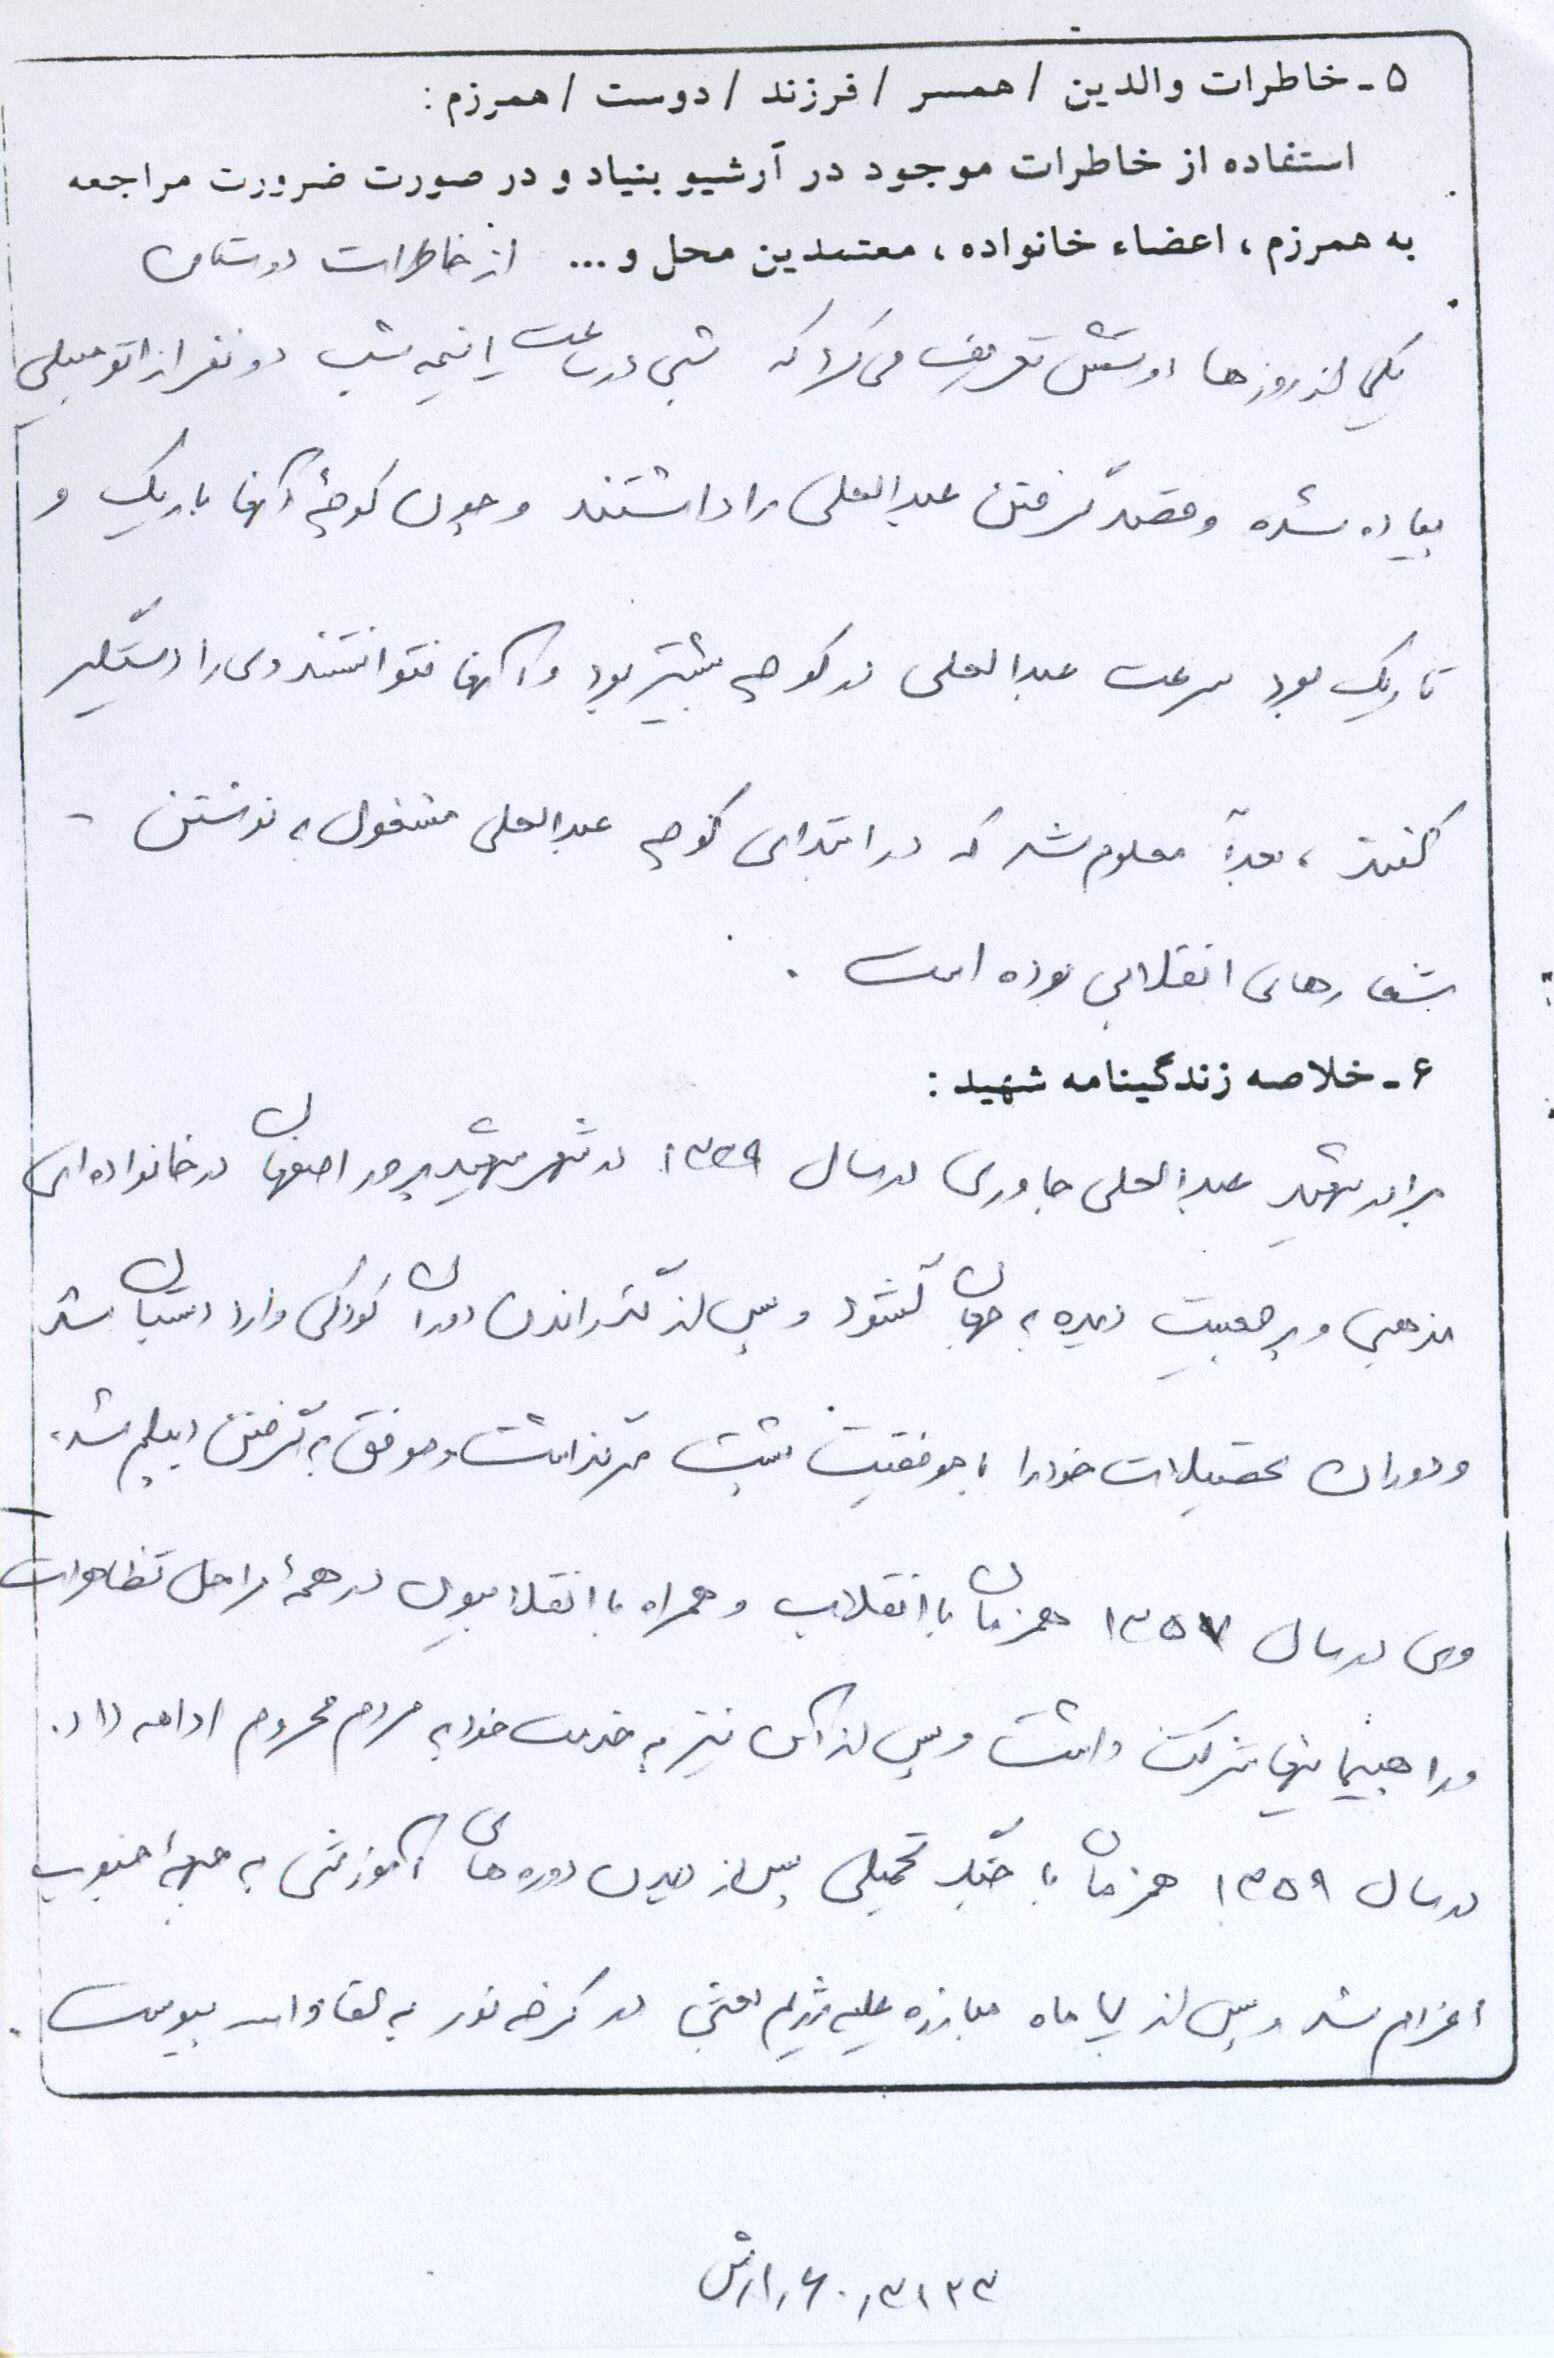 ۵ ـ خاطرات والدین / همسر / فرزند / دوست / همرزم :
استفاده از خاطرات موجود در آرشیو بنیاد و در صورت ضرورت مراجعه
به همرزم ، اعضاء خانواده ، معتمدین محل و ... از خاطرات دوستان
یکی از روزها دوستش تعریف می کرد که شبی در ساعت نیمه شب دو نفر از اتومبیلی
پیاده شده و قصد گرفتن عبدالعلی را داشتند و چون کوچهٔ آنها باریک و
تاریک بود سرعت عبدالعلی در کوچه بیشتر بود و آنها نتوانستند وی را دستگیر
کنند ، بعداً معلوم شد که در ابتدای کوچه عبدالعلی مشغول به نوشتن
شعارهای انقلابی بوده است .
۶ ـ خلاصه زندگینامه شهید :
برادر شهید عبدالعلی جاوری در سال ۱۳۳۹ در شهر شهیدپرور اصفهان در خانواده ای
مذهبی و پرجمعیت دیده به جهان گشود و پس از گذراندن دوران کودکی وارد دبستان شد
و دوران تحصیلات خود را با موفقیت پشت سر گذاشت و موفق به گرفتن دیپلم شد.
وی در سال ۱۳۵۷ همزمان با انقلاب و همراه با انقلابیون در همهٔ مراحل تظاهرات
و راهپیمائیها شرکت داشت و پس از آن نیز به خدمت خود به مردم محروم ادامه داد.
در سال ۱۳۵۹ همزمان با جنگ تحمیلی پس از دیدن دوره های آموزشی به جبههٔ جنوب
اعزام شد و پس از ماه مبارزه علیه رژیم بعثی در کرخه نور به لقاءالله پیوست .
۶۰٫۳۱۲۳